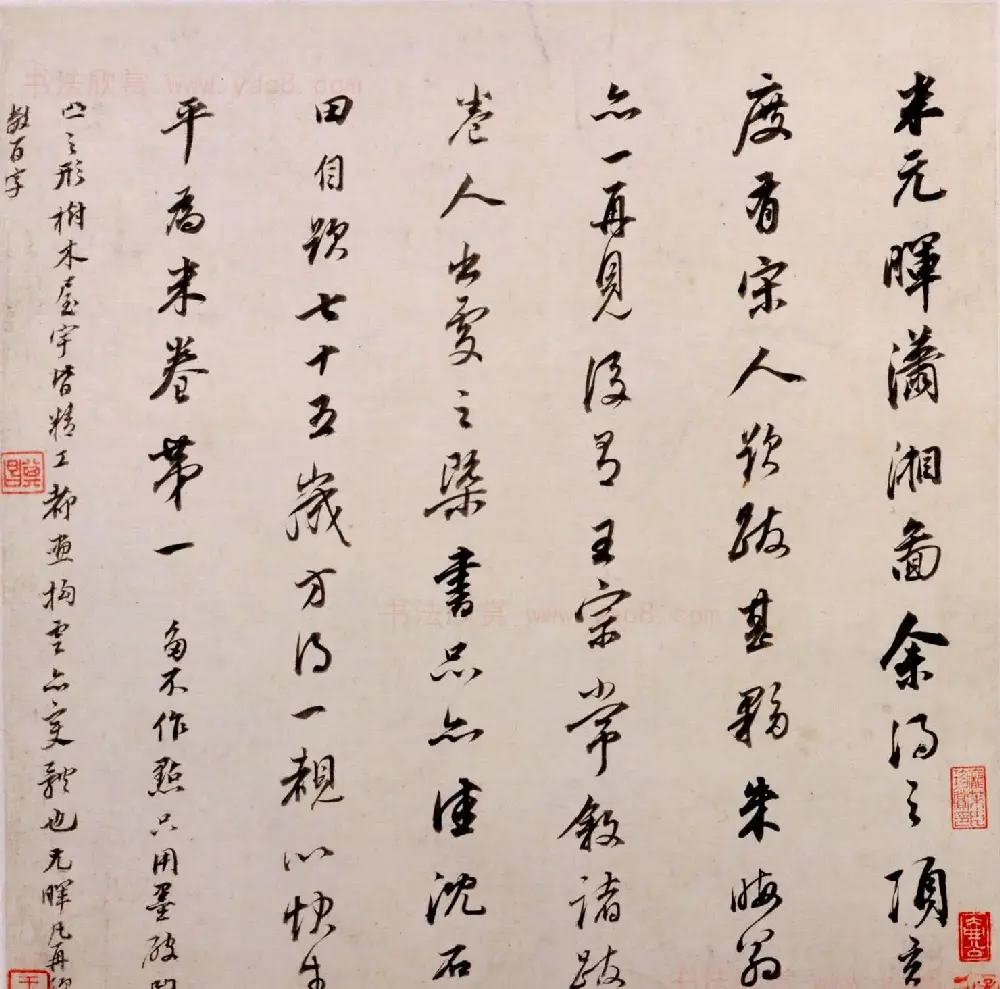 米元暉瀟湘啚余得之項玄
度有宋人欵跋甚夥朱晦翁
亦一再見後有王宗常敘諸跋
卷人出處之槩書品亦佳沈石
田自題七十五歲方得一覩以快生
平為米卷第一 畫不作點只用墨破凹
凸之形樹木屋宇皆精工都畫雲亦變體也元暉凡再
數百字
书法欣赏 www.yac8.com
书法欣赏 www.yac8.com